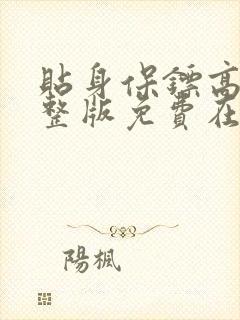 貼身保鏢高
整版免費在
陽楓